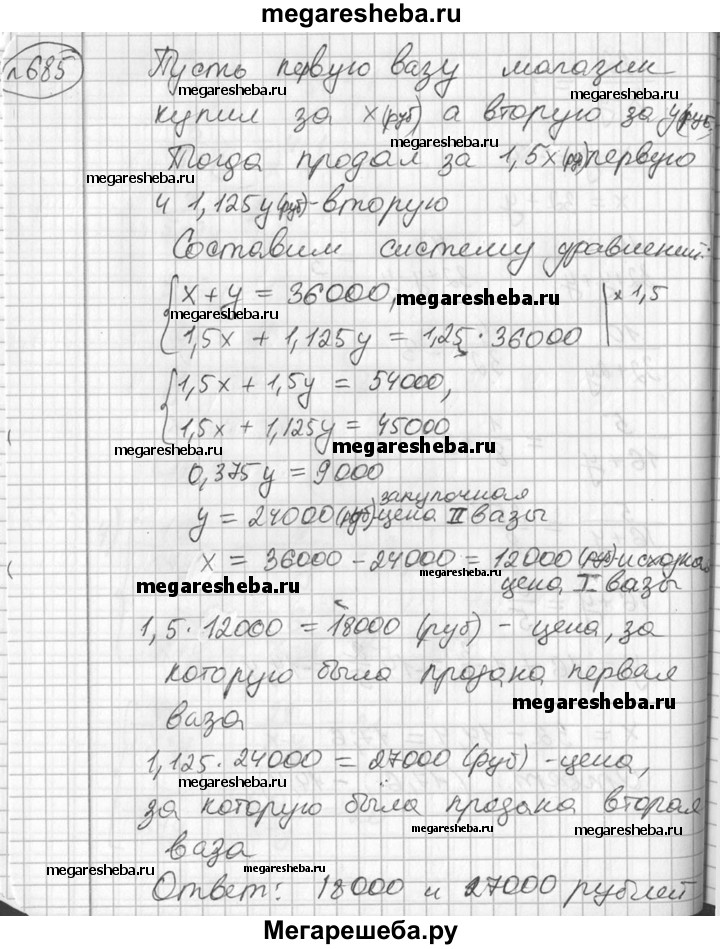 megaresheba.ru
№685 Пусть первую вазу магазин
megaresheba.ru megaresheba.ru
купил за x(руб) а вторую за y(руб.)
megaresheba.ru
Тогда продал за 1,5x(руб) первую
megaresheba.ru
и 1,125y(руб)-вторую
Составим систему уравнений:
x + y = 36000, | x 1,5
megaresheba.ru
megaresheba.ru
1,5x + 1,125y = 1,25 · 36000
1,5x + 1,5y = 54000,
1,5x + 1,125y = 45000
megaresheba.ru megaresheba.ru
0,375y = 9000
закупочная
y = 24000(руб)-цена II вазы
x = 36000 - 24000 = 12000(руб)-исходная
megaresheba.ru
megaresheba.ru цена I вазы
1,5 · 12000 = 18000 (руб) - цена, за
которую была продана первая
megaresheba.ru
ваза
1,125 · 24000 = 27000 (руб) - цена,
megaresheba.ru
за которую была продана вторая
megaresheba.ru megaresheba.ru
ваза
megaresheba.ru megaresheba.ru
Ответ: 18000 и 27000 рублей
Мегарешеба.ру